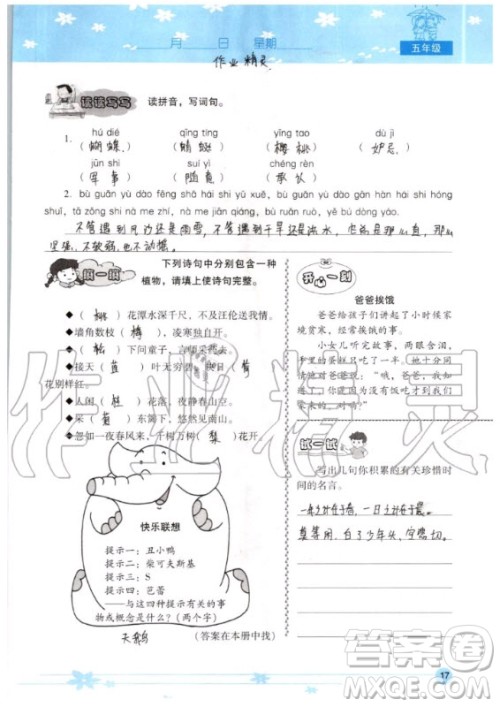 月 日 星期
五年级
作业精灵
读读写写 读拼音，写词句。
hú dié qīng tíng yīng tao dù jì
1. （蝴蝶） （蜻蜓） （樱桃） （妒忌）
jūn shì suí yì chéng rèn
（军事） （随意） （承认）
2. bù guǎn yù dào fēng shā hái shi yǔ xuě, bù guǎn yù dào gān hàn hái shi hóng
shuǐ, tā zǒng shì nà me zhí, nà me jiān qiáng, bù ruǎn ruò, yě bù dòng yáo.
不管遇到风沙还是雨雪，不管遇到干旱还是洪水，它总是那么直，那么
坚强，不软弱，也不动摇。
填一填
下列诗句中分别包含一种
植物，请填上使诗句完整。
◆（桃）花潭水深千尺，不及汪伦送我情。
◆墙角数枝（梅），凌寒独自开。
◆（松）下问童子，言师采药去。
◆接天（莲）叶无穷碧，映日（荷）
花别样红。
◆人闲（桂）花落，夜静春山空。
◆采（菊）东篱下，悠然见南山。
◆忽如一夜春风来，千树万树（梨）花开。
快乐联想
提示一：丑小鸭
提示二：柴可夫斯基
提示三：S
提示四：芭蕾
——与这四种提示有关的事
物或概念是什么？（两个字）
天鹅 （答案在本册中找）
开心一刻
爸爸挨饿
爸爸给孩子们讲起了小时候家
境贫寒，经常挨饿的事。
小女儿听完故事，两眼含泪，
手里的蛋糕只吃了一半，她十分同
情地对爸爸说：“哦，爸爸，爸爸，
你是因为没有饭吃才来到我们
家来的，对吗？”
试一试
写出几句你积累的有关珍惜时
间的名言。
一年之计在于春，一日之计在于晨。
莫等闲，白了少年头，空悲切。
作业精灵
答案圈
MXQE.COM
17